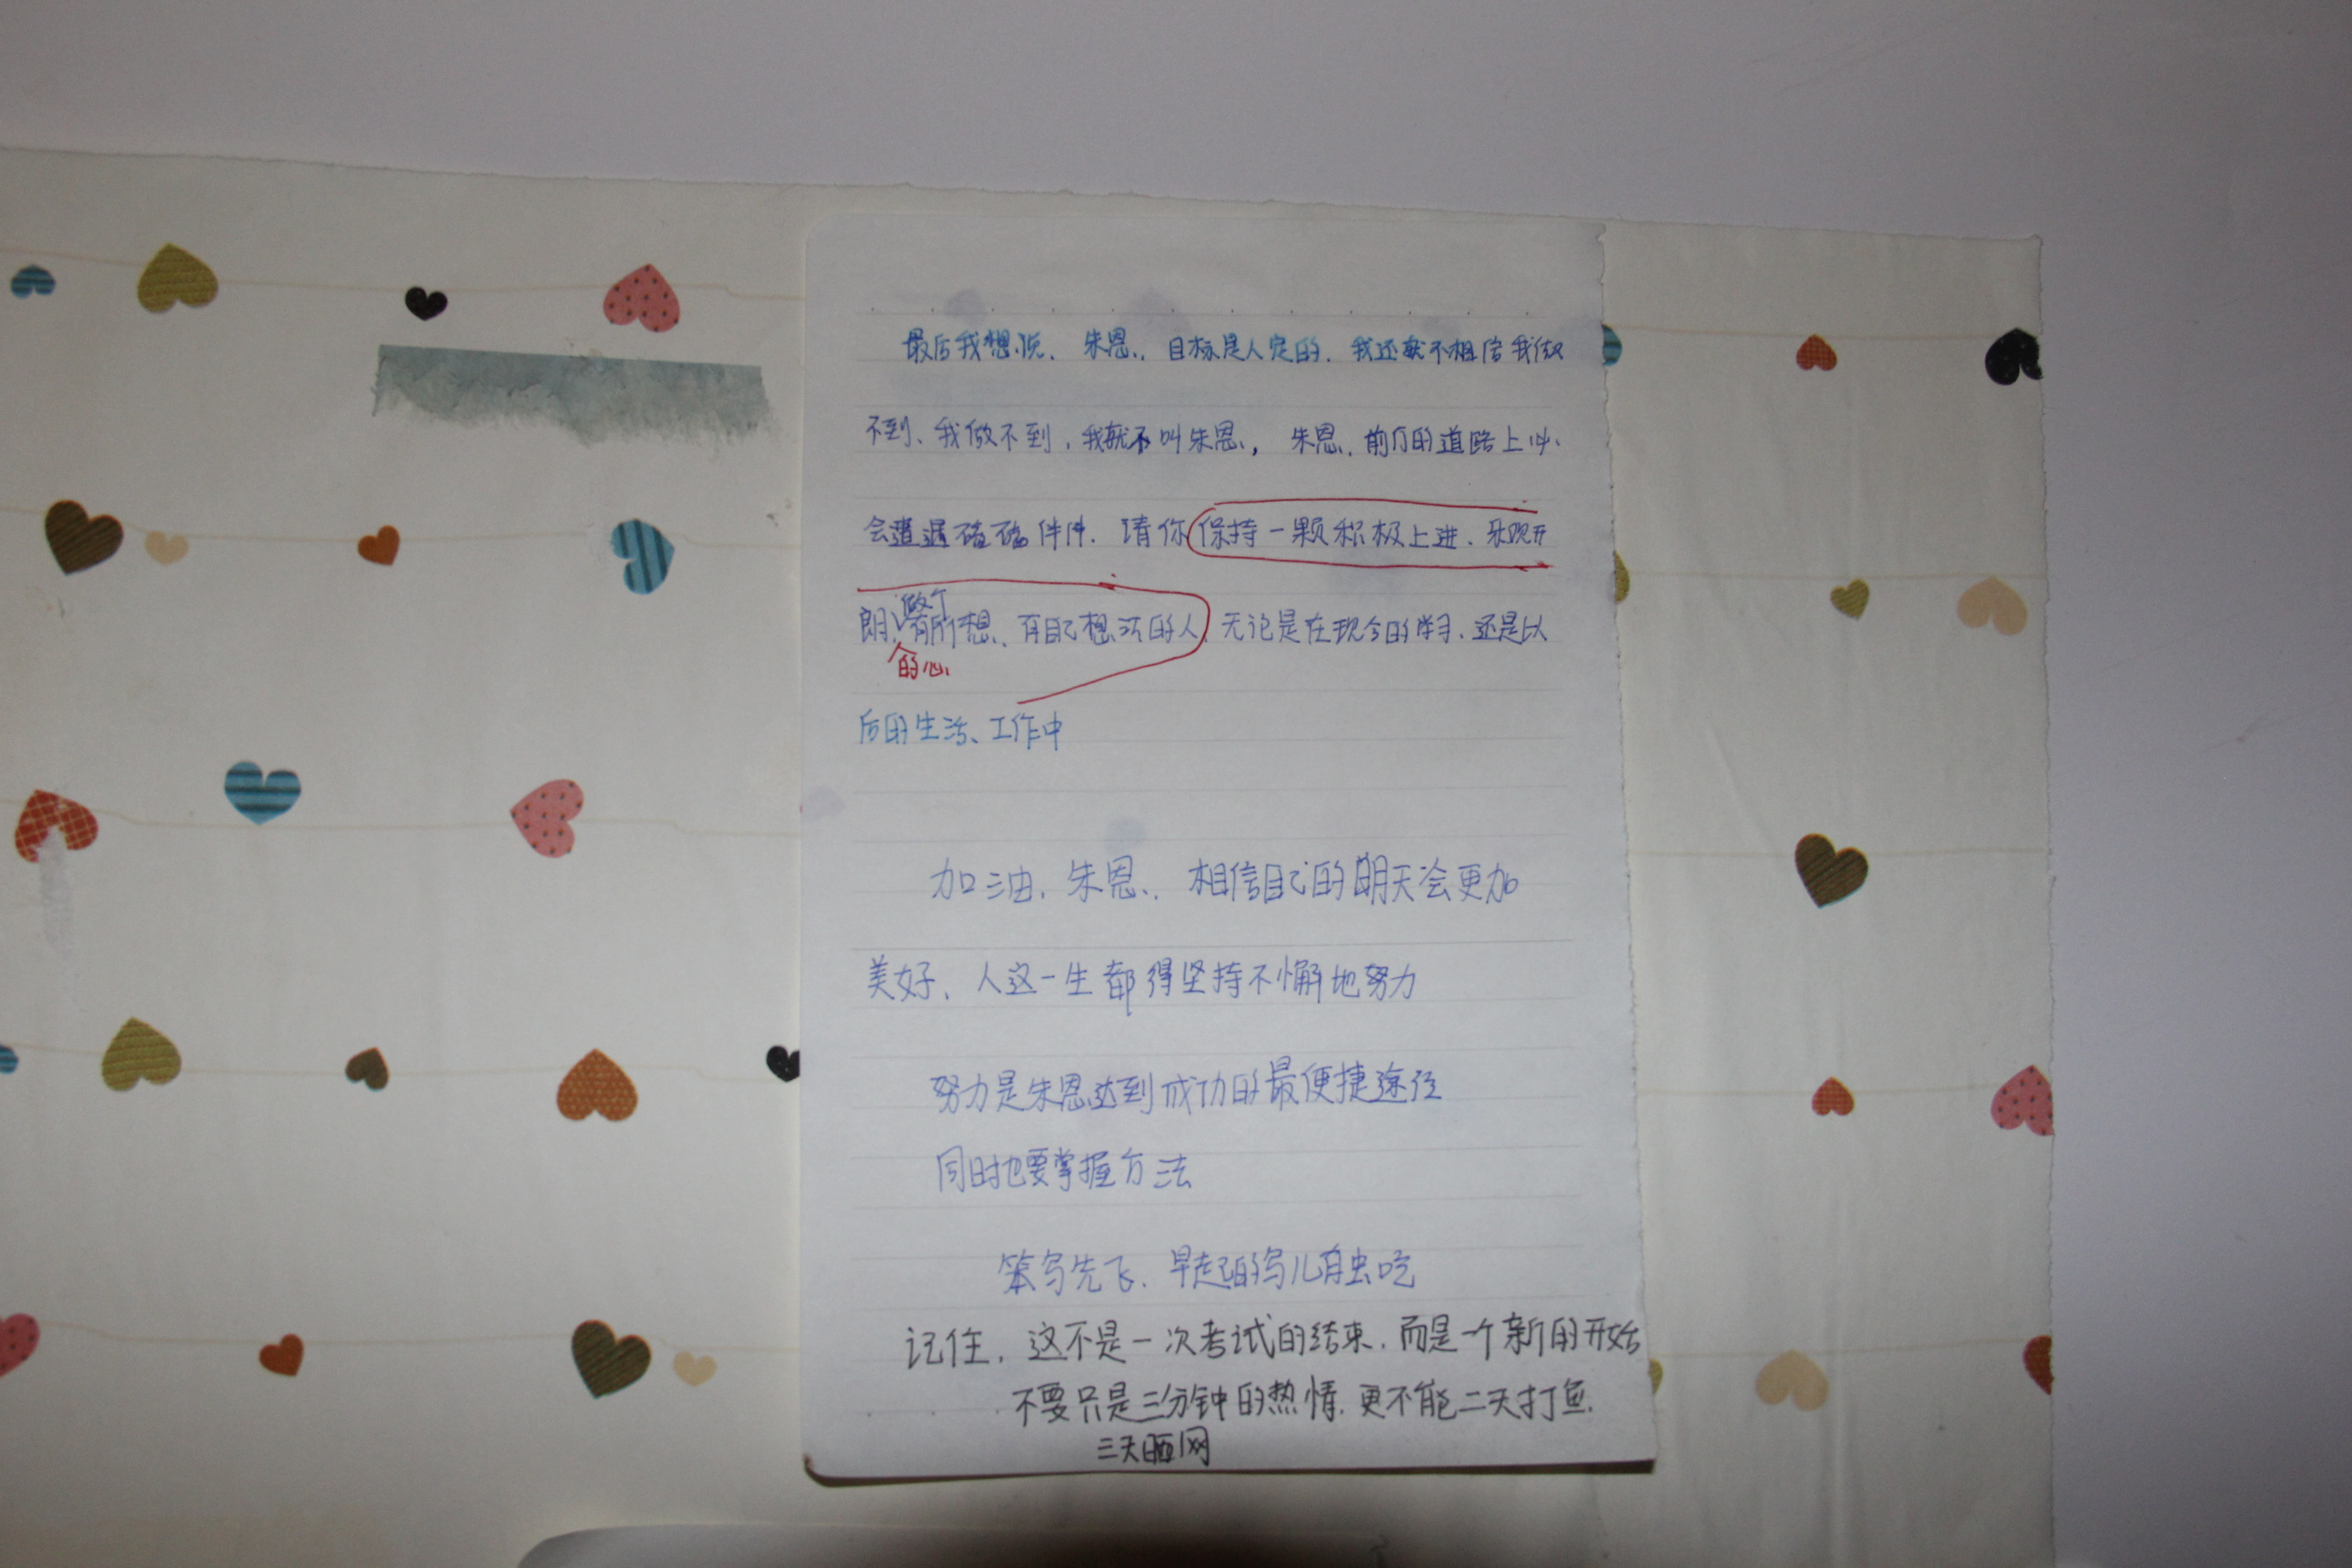 最后我想说.朱恩.,目标是人定的.我还就不相信我做
不到、我做不到,我就不叫朱恩., 朱恩.前行的道路上必
会遭遇磕磕件件.请你保持一颗积极上进.乐观开
做个
朗、有所想、有自己想法的人.无论是在现今的学习.还是以
的心
后的生活、工作中
加油.朱恩.. 相信自己的明天会更加
美好、人这一生都得坚持不懈地努力
努力是朱恩达到成功的最便捷途径
同时也要掌握方法
笨鸟先飞.早起的鸟儿有虫吃
记住.这不是一次考试的结束.而是一个新的开始
不要只是三分钟的热情.更不能二天打鱼.
三天晒网